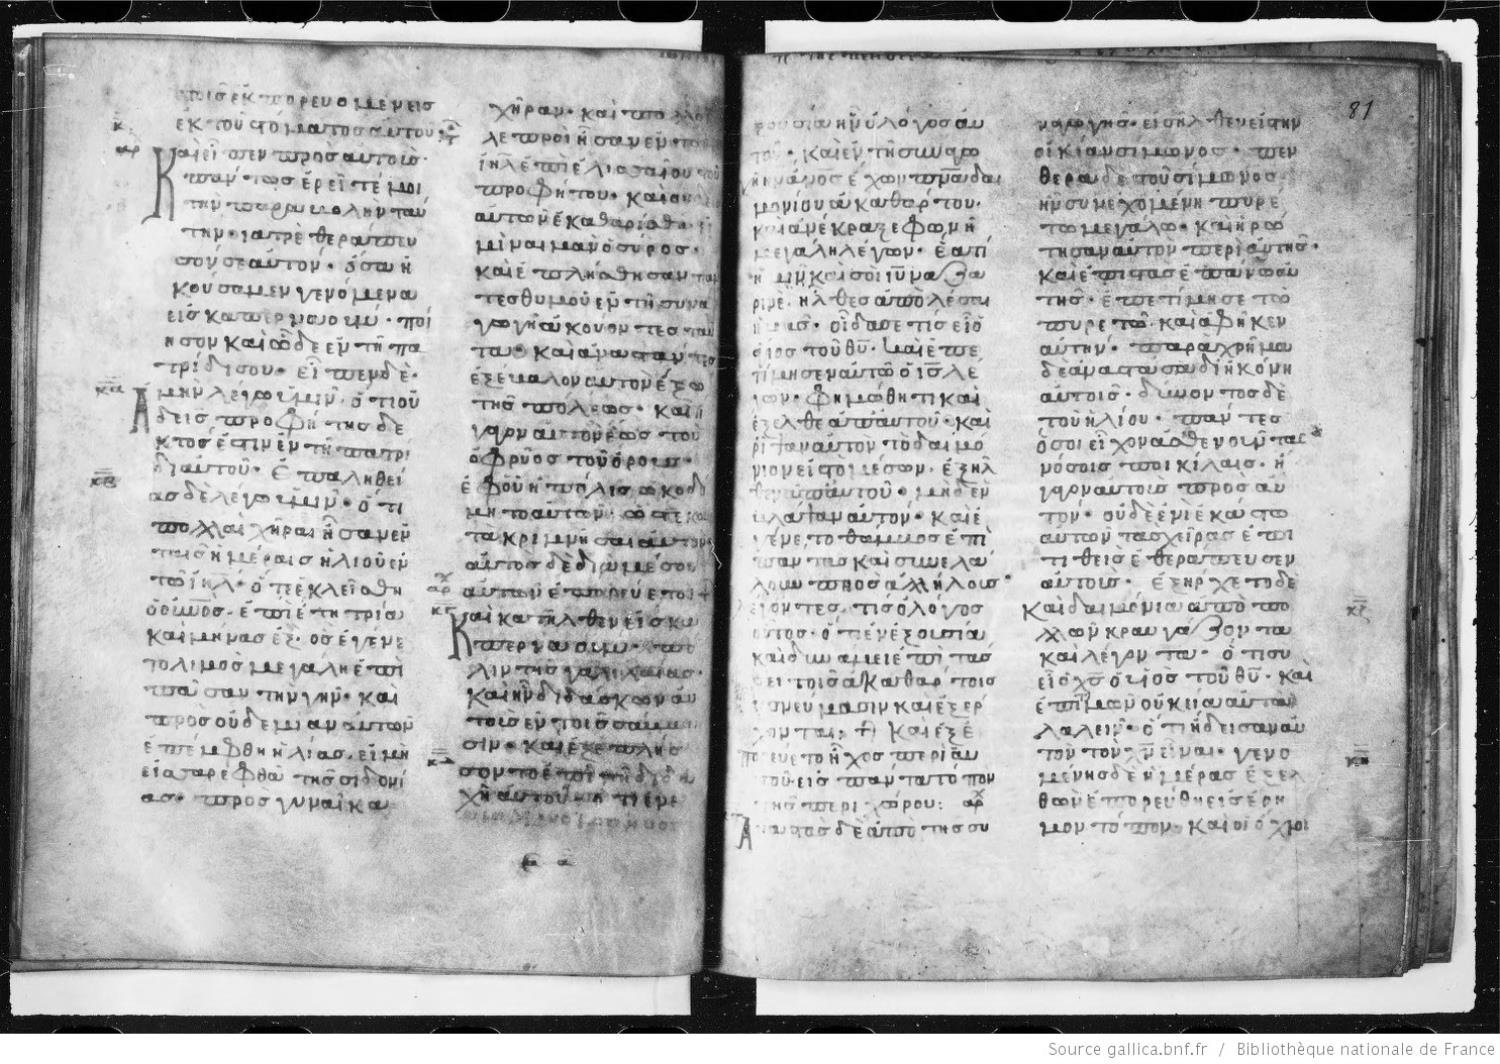 τοισ ἐκπορευομένοισ
ἐκ τοῦ στόματοσ αὐτοῦ·
Καὶ εἶπεν πρὸσ αὐτούσ·
πάντωσ ἐρεῖτέ μοι
τὴν παραβολὴν ταύ
την· ἰατρὲ θεράπευ
σον σεαυτόν· ὅσα ἠ
κούσαμεν γενόμενα
εἰσ καπερναούμ· ποί
ησον καὶ ὧδε ἐν τῆ πα
τρίδι σου· εἶπεν δέ·
Ἀμὴν λέγω ὑμῖν· ὅτι οὐ
δεὶσ προφήτησ δε
κτόσ ἐστιν ἐν τῆ πατρί
δι αὐτοῦ· ἐπ ἀληθεί
ασ δὲ λέγω ὑμῖν· ὅτι
πολλαὶ χῆραι ἦσαν ἐν
ταῖσ ἡμέραισ ἡλιοῦ ἐν
τῶ ἰηλ· ὅτε ἐκλείσθη
ὁ οὐνοσ· ἐπὶ ἔτη τρία
καὶ μῆνασ ἕξ· ὡσ ἐγένε
το λιμὸσ μέγασ ἐπὶ
πᾶσαν τὴν γῆν· καὶ
πρὸσ οὐδεμίαν αὐτῶν
ἐπέμφθη ἠλίασ· εἰ μὴ
εἰσ σαρεφθὰ τῆσ σιδονί
ασ· πρὸσ γυναῖκα
χήραν· καὶ πολλοὶ
λεπροὶ ἦσαν ἐν τῶ
ἰηλ ἐπὶ ἐλισσαίου τοῦ
προφήτου· καὶ οὐδεὶσ
αὐτῶν ἐκαθαρίσθη· εἰ
μὴ ναιμὰν ὁ σύροσ·
καὶ ἐπλήσθησαν πάν
τεσ θυμοῦ ἐν τῆ συνα
γωγῆ ἀκούοντεσ ταῦ
τα· καὶ ἀναστάντεσ
ἐξέβαλον αὐτὸν ἔξω
τῆσ πόλεωσ· καὶ ἤ
γαγον αὐτὸν ἕωσ τοῦ
ὀφρύοσ τοῦ ὄρουσ·
ἐφ οὗ ἡ πόλισ ὠκοδό
μητο αὐτῶν· ὥστε κα
τακρημνῆσαι αὐτόν·
αὐτὸσ δὲ διὰ μέσου
αὐτῶν ἐπορεύετο·
Καὶ κατῆλθεν εἰσ κα
περναούμ· πό
λιν τῆσ γαλιλαίασ·
καὶ ἦν διδάσκων αὐ
τοὺσ ἐν τοῖσ σάββα
σιν· καὶ ἐξεπλήσ
σοντο ἐπὶ τῆ διδα
χῆ αὐτοῦ· ὅτι ἐν ἐ
81
ξουσία ἦν ὁ λόγοσ αὐ
τοῦ· καὶ ἐν τῆ συναγω
γῆ ἦν ἀνοσ ἔχων πνα δαι
μονίου ἀκαθάρτου·
καὶ ἀνέκραξε φωνῆ
μεγάλη λέγων· ἔα τί
ἡμῖν καὶ σοὶ ιυ ναζα
ρινέ· ἦλθεσ ἀπολέσαι
ἡμᾶσ· οἶδά σε τίσ εἶ ὁ
ἅγιοσ τοῦ θυ· καὶ ἐπε
τίμησεν αὐτῶ ὁ ισ λέ
γων· φιμώθητι καὶ
ἔξελθε ἀπ αὐτοῦ· καὶ
ρίψαν αὐτὸν τὸ δαιμό
νιον εἰσ τὸ μέσον· ἐξῆλ
θεν ἀπ αὐτοῦ· μηδὲν
βλάψαν αὐτόν· καὶ ἐ
γένετο θάμβοσ ἐπὶ
πάντασ καὶ συνελά
λουν πρὸσ ἀλλήλουσ
λέγοντεσ· τίσ ὁ λόγοσ
οὗτοσ· ὅτι ἐν ἐξουσία
καὶ δυνάμει ἐπιτάσ
σει τοῖσ ἀκαθάρτοισ
πνεύμασιν καὶ ἐξέρ
χονται· Καὶ ἐξε
πορεύετο ἦχοσ περὶ αὐ
τοῦ εἰσ πάντα τόπον
τῆσ περιχώρου:
Ἀναστὰσ δὲ ἀπὸ τῆσ συ
ναγωγῆσ· εἰσῆλθεν εἰσ τὴν
οἰκίαν σίμωνοσ· πεν
θερὰ δὲ τοῦ σίμωνοσ
ἦν συνεχομένη πυρε
τῶ μεγάλω· καὶ ἠρώ
τησαν αὐτὸν περὶ αὐτῆσ·
καὶ ἐπιστὰσ ἐπάνω αὐ
τῆσ· ἐπετίμησε τῶ
πυρετῶ· καὶ ἀφῆκεν
αὐτήν· παραχρῆμα
δὲ ἀναστᾶσα διηκόνη
αὐτοῖσ· δύνοντοσ δὲ
τοῦ ἡλίου· πάντεσ
ὅσοι εἶχον ἀσθενοῦντασ
νόσοισ ποικίλαισ· ἤ
γαγον αὐτοὺσ πρὸσ αὐ
τόν· ὁ δὲ ἑνὶ ἑκάστω
αὐτῶν τὰσ χεῖρασ ἐπι
τιθεὶσ ἐθεράπευσεν
αὐτούσ· ἐξήρχετο δὲ
καὶ δαιμόνια ἀπὸ πο
λλῶν κραυγάζοντα
καὶ λέγοντα· ὅτι σὺ
εἶ ὁ χσ ὁ υἱὸσ τοῦ θυ· καὶ
ἐπιτιμῶν οὐκ εἴα αὐτὰ
λαλεῖν· ὅτι ἤδεισαν αὐ
τὸν τὸν χν εἶναι· γενο
μένησ δὲ ἡμέρασ ἐξελ
θὼν ἐπορεύθη εἰσ ἔρη
μον τόπον· καὶ οἱ ὄχλοι